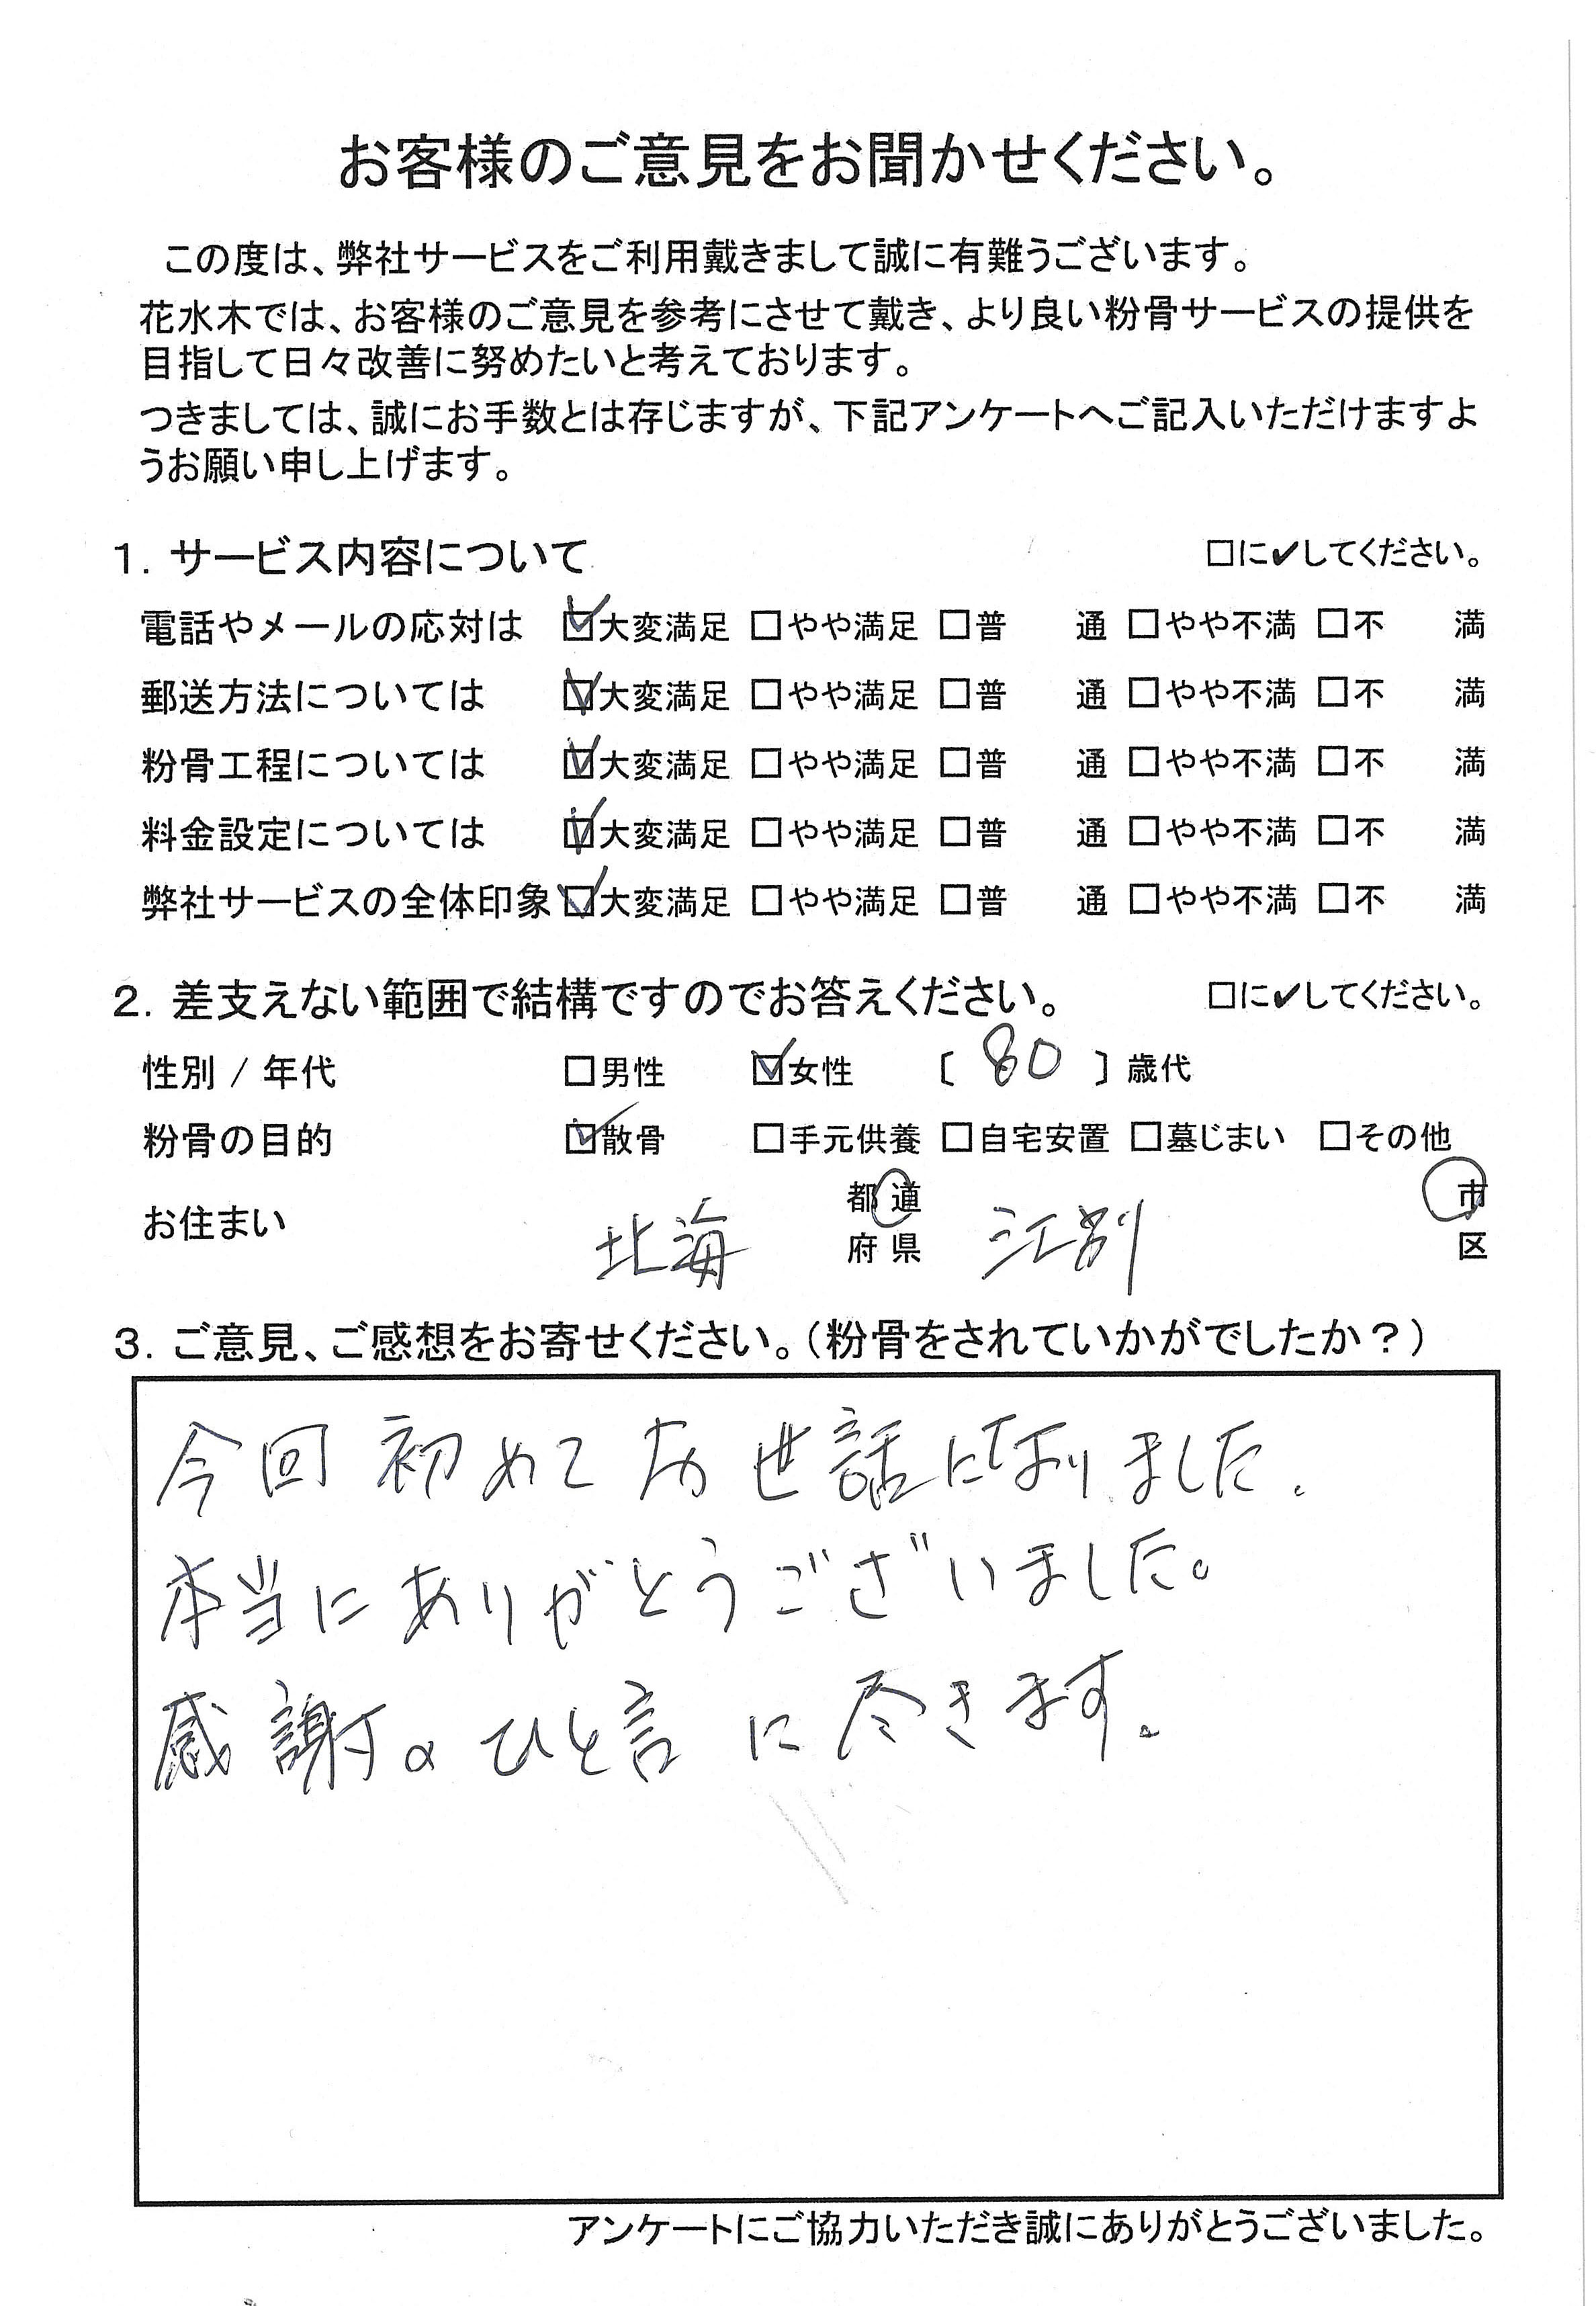 お客様のご意見をお聞かせください。
この度は、弊社サービスをご利用戴きまして誠に有難うございます。
花水木では、お客様のご意見を参考にさせて戴き、より良い粉骨サービスの提供を
目指して日々改善に努めたいと考えております。
つきましては、誠にお手数とは存じますが、下記アンケートへご記入いただけますよ
うお願い申し上げます。
1. サービス内容について □に✔してください。
電話やメールの応対は ☑大変満足 □やや満足 □普 通 □やや不満 □不 満
郵送方法については ☑大変満足 □やや満足 □普 通 □やや不満 □不 満
粉骨工程については ☑大変満足 □やや満足 □普 通 □やや不満 □不 満
料金設定については ☑大変満足 □やや満足 □普 通 □やや不満 □不 満
弊社サービスの全体印象 ☑大変満足 □やや満足 □普 通 □やや不満 □不 満
2. 差支えない範囲で結構ですのでお答えください。 □に✔してください。
性別 / 年代 □男性 ☑女性 〔 80 〕歳代
粉骨の目的 ☑散骨 □手元供養 □自宅安置 □墓じまい □その他
お住まい 北海 都道府県 江別 市区
3. ご意見、ご感想をお寄せください。（粉骨をされていかがでしたか？）
今回初めてお世話になりました.
本当にありがとうございました。
感謝のひと言に尽きます。
アンケートにご協力いただき誠にありがとうございました。